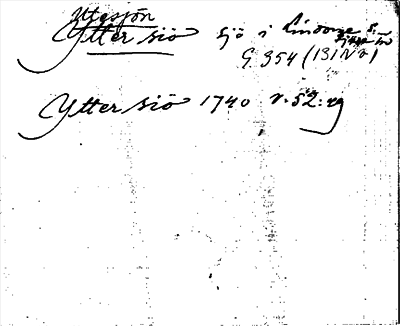 Utgsjön
Ytter siö sjö i Lindome s:n
G 354 (131 NV)
Ytter siö 1740 v. 52: ng